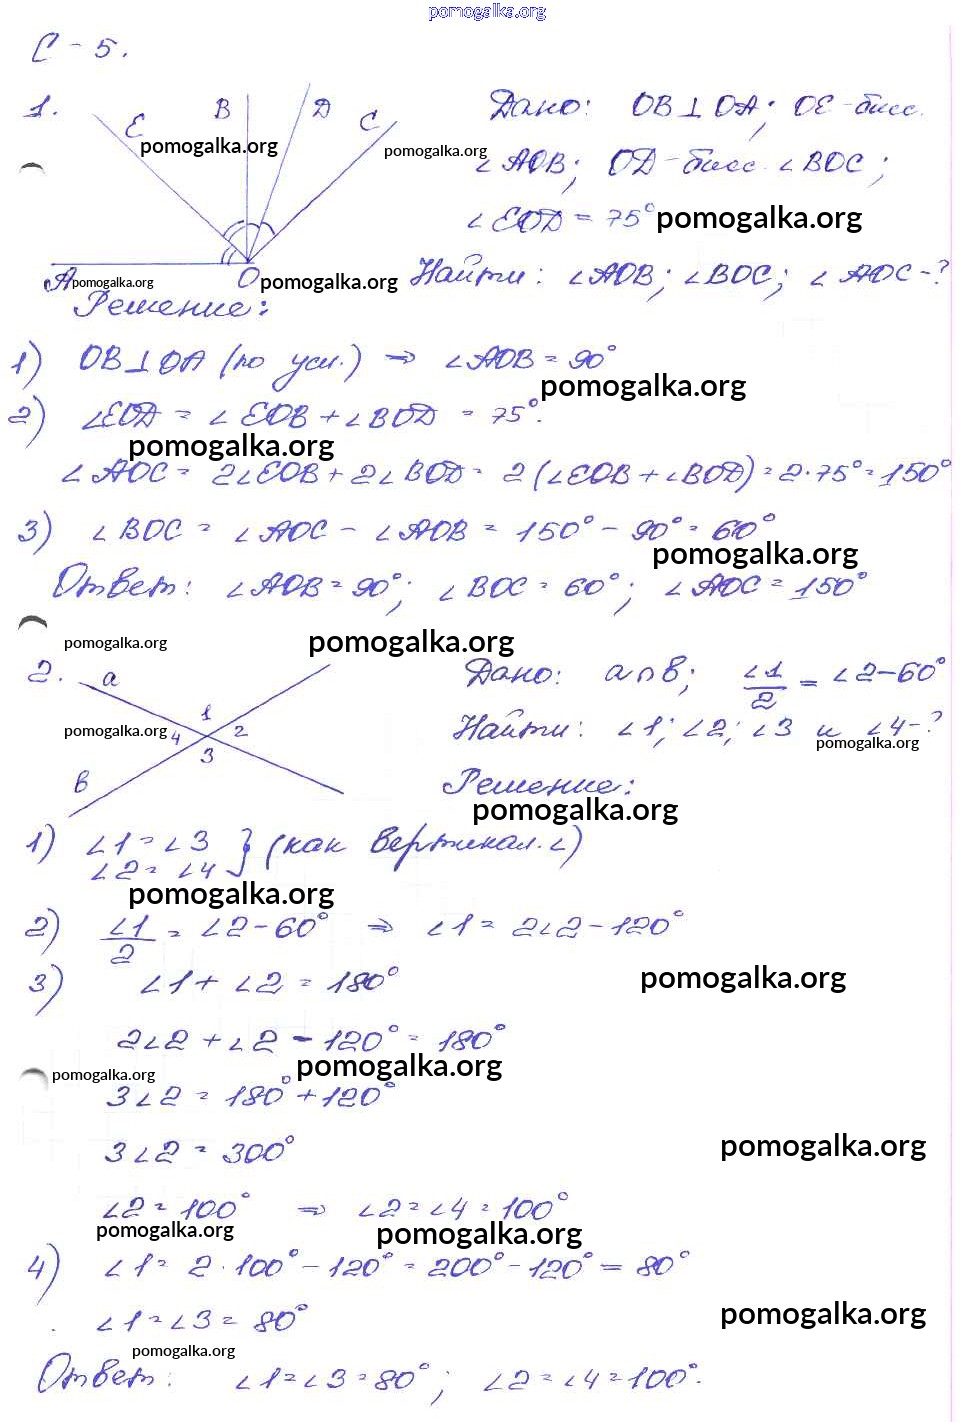 pomogalka.org
С-5.
1. E B D C Дано: OB⊥OA; OE-бисс.
pomogalka.org pomogalka.org
∠AOB; OD-бисс. ∠BOC;
∠EOD = 75° pomogalka.org
A pomogalka.org O pomogalka.org Найти: ∠AOB; ∠BOC; ∠AOC-?
Решение:
1) OB⊥OA (по усл.) ⇒ ∠AOB = 90°
pomogalka.org
2) ∠EOD = ∠EOB + ∠BOD = 75°.
pomogalka.org
∠AOC = 2∠EOB + 2∠BOD = 2(∠EOB + ∠BOD) = 2·75° = 150°
3) ∠BOC = ∠AOC - ∠AOB = 150° - 90° = 60°
pomogalka.org
Ответ: ∠AOB = 90°; ∠BOC = 60°; ∠AOC = 150°
pomogalka.org pomogalka.org
2. a Дано: a∩b; ∠1/2 = ∠2-60°
1
pomogalka.org 4 2 Найти: ∠1; ∠2; ∠3 и ∠4-?
3 pomogalka.org
b Решение:
pomogalka.org
1) ∠1 = ∠3 } (как вертикал. ∠)
∠2 = ∠4
pomogalka.org
2) ∠1/2 = ∠2-60° ⇒ ∠1 = 2∠2-120°
3) ∠1 + ∠2 = 180°
pomogalka.org
2∠2 + ∠2 - 120° = 180°
pomogalka.org pomogalka.org
3∠2 = 180° + 120°
3∠2 = 300°
pomogalka.org
∠2 = 100° ⇒ ∠2 = ∠4 = 100°
pomogalka.org pomogalka.org
4) ∠1 = 2·100° - 120° = 200° - 120° = 80°
∠1 = ∠3 = 80°
pomogalka.org
pomogalka.org
Ответ: ∠1 = ∠3 = 80°; ∠2 = ∠4 = 100°.